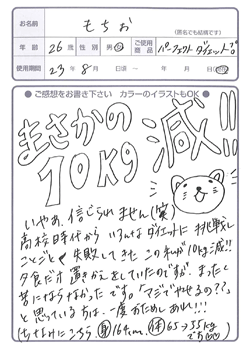 お名前
もちお
(匿名でも結構です)
年齢 26歳 性別 男・女 ご使用商品 パーフェクトダイエットプロ
使用期間 23年8月 日頃 ～ 年 月 日
●ご感想をお書き下さい カラーのイラストもOK●
まさかの
10kg減!!
いやぁ、信じられません(笑)
高校時代からいろんなダイエットに挑戦し
ことごとく失敗してきたこの私が10kg減!!
夕食だけ置きかえをしていたのですが、まったく
苦にならなかったです。「マジでやせるの??」
と思っている方は、一度おためしあれ!!!
(ちなみにこちら 身 164cm、体 65→55kg
です